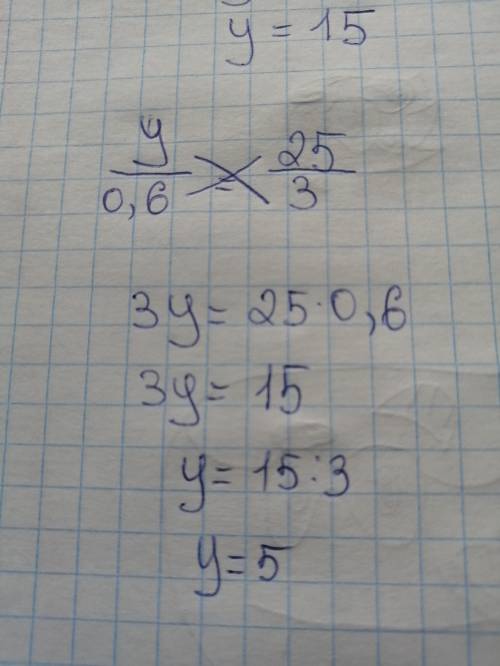 y = 15
y/0,6 = 25/3
3y = 25·0,6
3y = 15
y = 15:3
y = 5